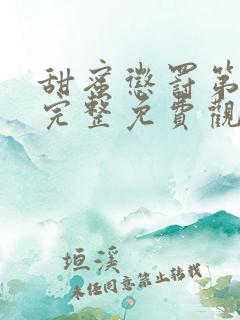 甜蜜懲罰第
完整免費觀
垣溪
未经同意禁止转载